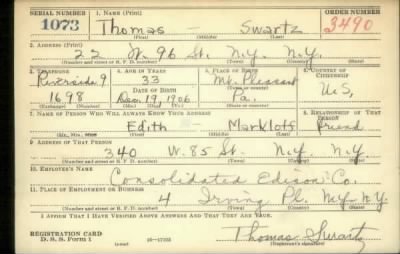 SERIAL NUMBER 1. NAME (Print) ORDER NUMBER
1073 Thomas - Swartz 3490
(First) (Middle) (Last)
2. ADDRESS (Print)
22 W. 96 St. N.Y. N.Y.
(Number and street or R. F. D. number) (Town) (County) (State)
3. TELEPHONE 4. AGE IN YEARS 5. PLACE OF BIRTH 6. COUNTRY OF CITIZENSHIP
Riverside 9 33 Mt. Pleasant
DATE OF BIRTH U.S.
1698 Dec. 19, 1906 Pa.
(Exchange) (Number) (Mo.) (Day) (Yr.) (State or country)
7. NAME OF PERSON WHO WILL ALWAYS KNOW YOUR ADDRESS 8. RELATIONSHIP OF THAT PERSON
Edith Markloff friend
(Mr., Mrs., Miss) (First) (Middle) (Last)
9. ADDRESS OF THAT PERSON
340 W. 85 St. N.Y. N.Y.
(Number and street or R. F. D. number) (Town) (County) (State)
10. EMPLOYER'S NAME
Consolidated Edison Co.
11. PLACE OF EMPLOYMENT OR BUSINESS
4 Irving Pl. N.Y. N.Y.
(Number and street or R. F. D. number) (Town) (County) (State)
I AFFIRM THAT I HAVE VERIFIED ABOVE ANSWERS AND THAT THEY ARE TRUE.
Thomas Swartz
REGISTRATION CARD
D. S. S. Form 1 (over) 16-17105 (Registrant's signature)